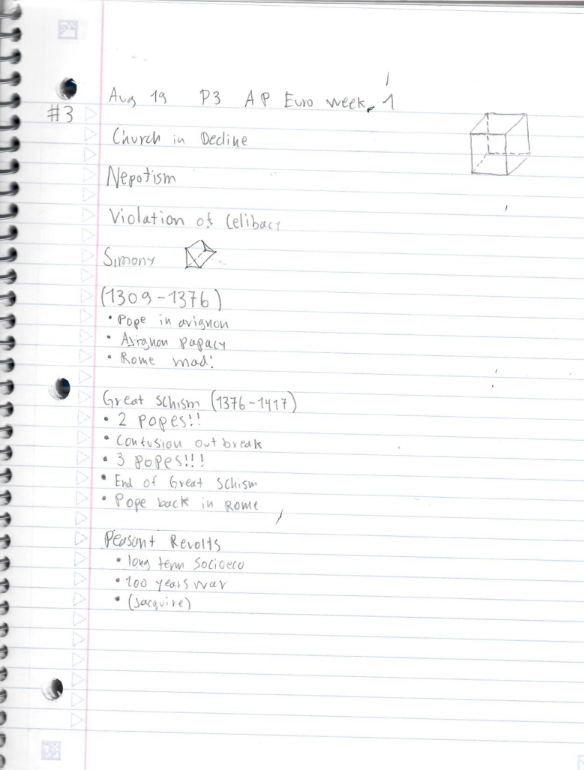 Aug 19 P3 AP Euro week 1
#3
Church in Decline
Nepotism
Violation of Celibacy
Simony
(1309-1376)
• Pope in avignon
• Avignon papacy
• Rome mad!
Great schism (1376-1417)
• 2 popes!!
• Confusion outbreak
• 3 popes!!!
• End of Great Schism
• Pope back in Rome
Peasant Revolts
• long term Socioeco
• 100 years war
• (Jacquire)